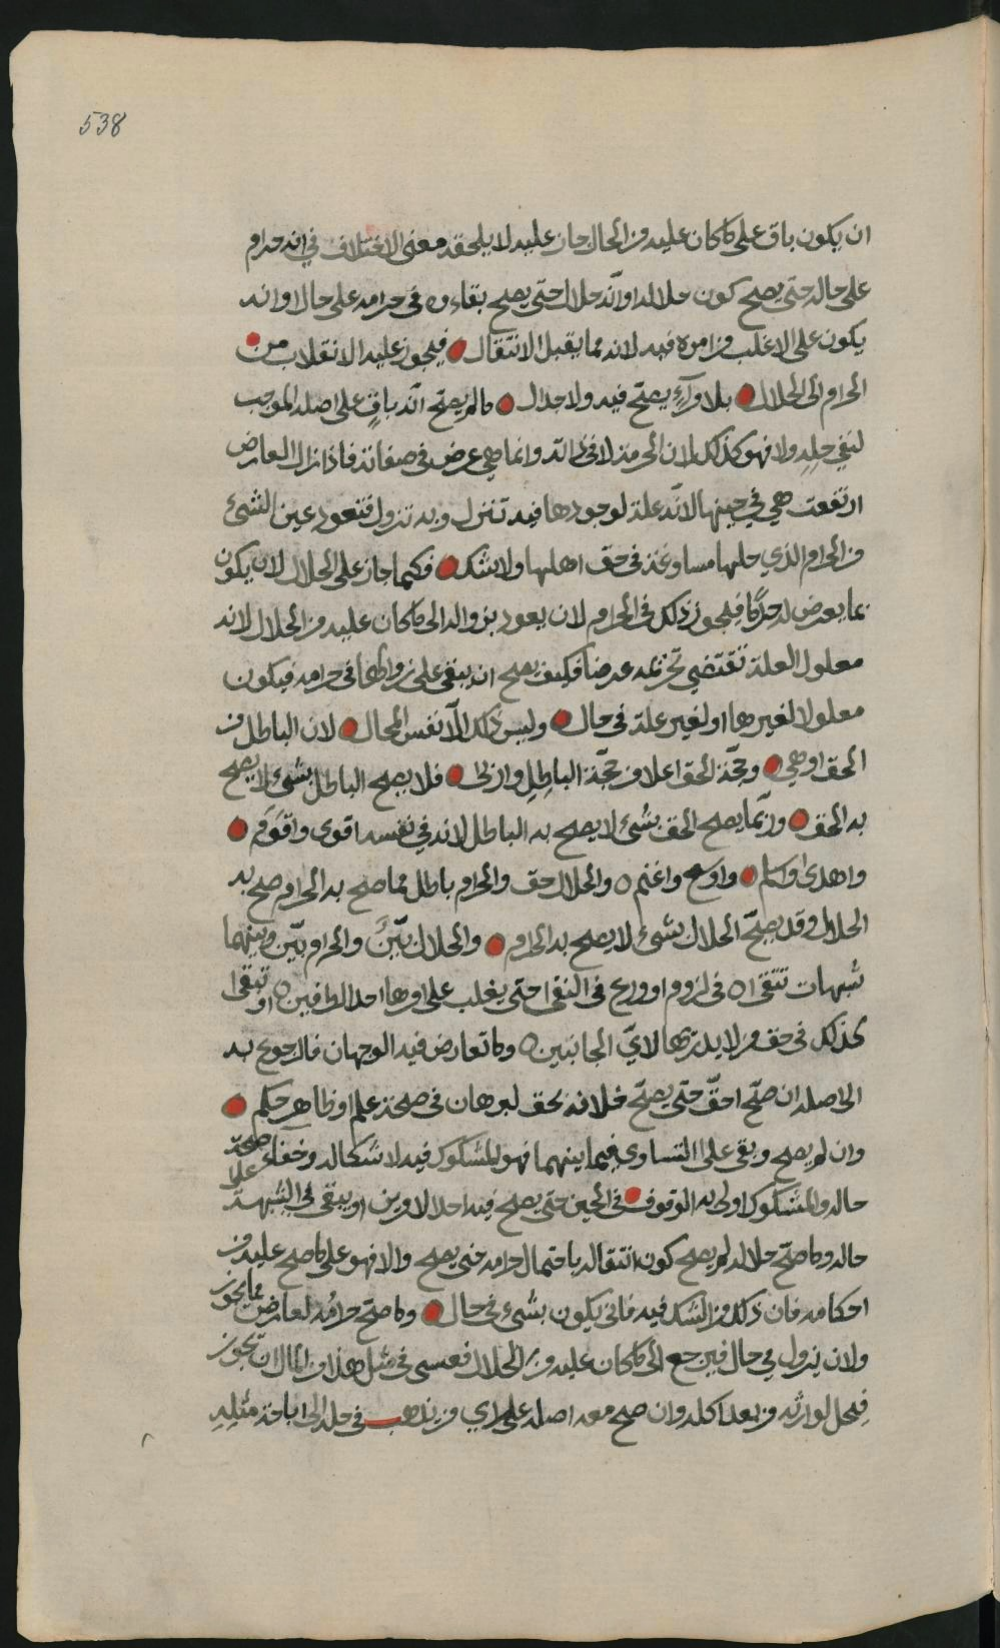 538
ان يكون باق على ما كان عليه من الحال جاز عليه لا يلحقه معنى الاختلاف في انه حرام
على حاله حتى يصح كون حلاله او انّه حلال حتى يصح بقاءه في حرامه على حال او انه
يكون على الاغلب من امره فيه لانه مما يقبل الانتقال فيجوز عليه الانقلاب من
الحرام الى الحلال بلا يصحّ فيه ولا جدال ما لم يصحّ انّه باقٍ على اصله الموجب
لنفي حله ولا فهو كذلك لان الحرمة لا في ذاته وانما هي عرض في صفاته فاذا زال العارض
ارتفعت هي في حينها لانّه علة لوجودها فيه تنزل وبه تزول فتعود عين الشيء
من الحرام الذي حلها في حق اهلها ولا شك فكما جاز على الحلال لان يكون
بما يعرض له فيجوز ذلك في الحرام لان يعود بزواله الى ما كان عليه من الحلال لانه
معلول العلة تقتضي تحريمه عرضا فكيف يصح ان يبقى على زوالها في حرامه فيكون
معلولا لغيرها او لغير علة في حال وليس ذلك الّا نفس المحال لان الباطل من
الحق اوهى وحجّة الحق اعلا من حجّة الباطل وازكى فلا يصح الباطل بشيء لا يصح
به الحق وربّما يصح الحق بشيء لا يصح به الباطل لانه في نفسه اقوى واقوَم
واهدى واسلم واوسع واغنم والحلال حق والحرام باطل فما صح به الحرام صح به
الحلال وقد يصحّ الحلال بشيء لا يصح به الحرام والحلال بيّنٌ والحرام بيّن وبينهما
شبهات تتقى في لزوم او ورع في التقى حتى يغلب على امرها احد الطرفين او تبقى
كذلك في حق من لا يدريها لايّ الجانبين وما تعارض فيه الوجهان فالرجوع به
الى اصله ان صحّ احقّ حتى يصحّ فلانه بحق لبرهان في صحة علم او ظاهر حكم
وان لم يصح وبقي على التساوي فيما بينهما فهو المشكوك فيه لاشكاله وخفاء صحّة
حاله والمشكوك اولى به الوقوف في الحين حتى يصح فيه احد الامرين او يبقى في الشبهة على
حاله وما صحّ حلاله لم يصح كون انتقاله باحتمال حرامه حتى يصح والا فهو على ما صح عليه من
احكامه فان ذلك من الشك فيه فانى يكون بشيء في حال وما صحّ حرامُه لعارض مما يجوز
ولان يزول في حال فيرجع الى ما كان عليه من الحلال فعسى في مثل هذا من المال ان يجوز
فيحل لوارثه من بعد اكله وان صح معه اصله على راي من يذهب في حله الى اباحة مثلِهِ